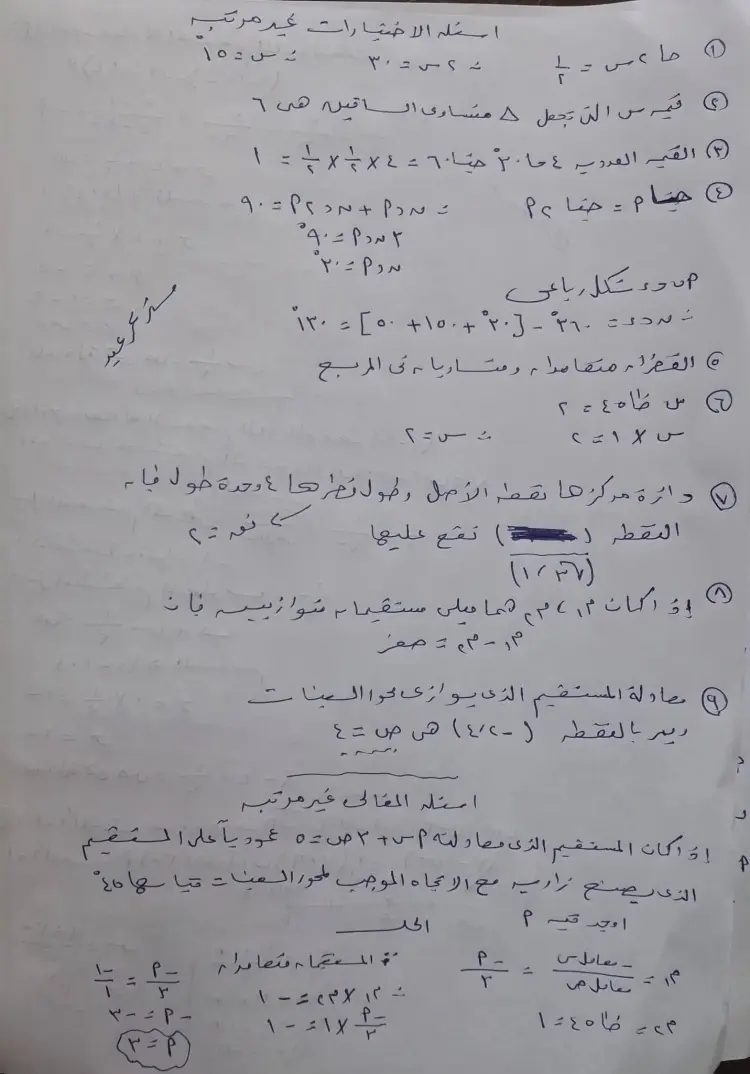 اسئله الاختيارات غير مرتبه
① حا ٢ س = ١/٢ ∴ ٢ س = ٣٠ ∴ س = ١٥°
② قيمه س التى تجعل △ متساوى الساقين هى ٦
③ القيمه العدديه ٤ حا ٣٠° حتا ٦٠ = ٤ × ١/٢ × ١/٢ = ١
④ حا م = حتا ٢ م ∴ ن د م + ن د ٢ م = ٩٠
٣ ن د م = ٩٠°
ن د م = ٣٠°
م ب ح د شكل رباعى
∴ ن د ء = ٣٦٠° - [٣٠° + ١٥٠ + ٥٠] = ١٣٠°
مستر / عيد
⑤ القطران متعامدان ومتساويان فى المربع
⑥ س ظا ٤٥ = ٢
س × ١ = ٢ ∴ س = ٢
⑦ دائرة مركزها نقطه الأصل وطول قطرها ٤ وحدة طول فان
النقطه ( ) تقع عليها نق = ٢
(√٣ ، ١)
⑧ إذا كان م١ ، م٢ هما ميلى مستقيمان متوازيين فان
م١ - م٢ = صفر
⑨ معادلة المستقيم الذى يوازى محور السينات
ويمر بالنقطه (-٢ ، ٤) هى ص = ٤
اسئله المقالى غير مرتبه
إذا كان المستقيم الذى معادلته م س + ٣ ص = ٥ عمودياً على المستقيم
الذى يصنع زاويه مع الاتجاه الموجب لمحور السينات قياسها ٤٥°
اوجد قيمه م الحل
م١ = -معامل س / معامل ص = -م/٣ ∵ المستقيمان متعامدان -م/٣ = -١/١
م٢ = ظا ٤٥ = ١ ∴ م١ × م٢ = -١ -م = -٣
-م/٣ × ١ = -١ م = ٣